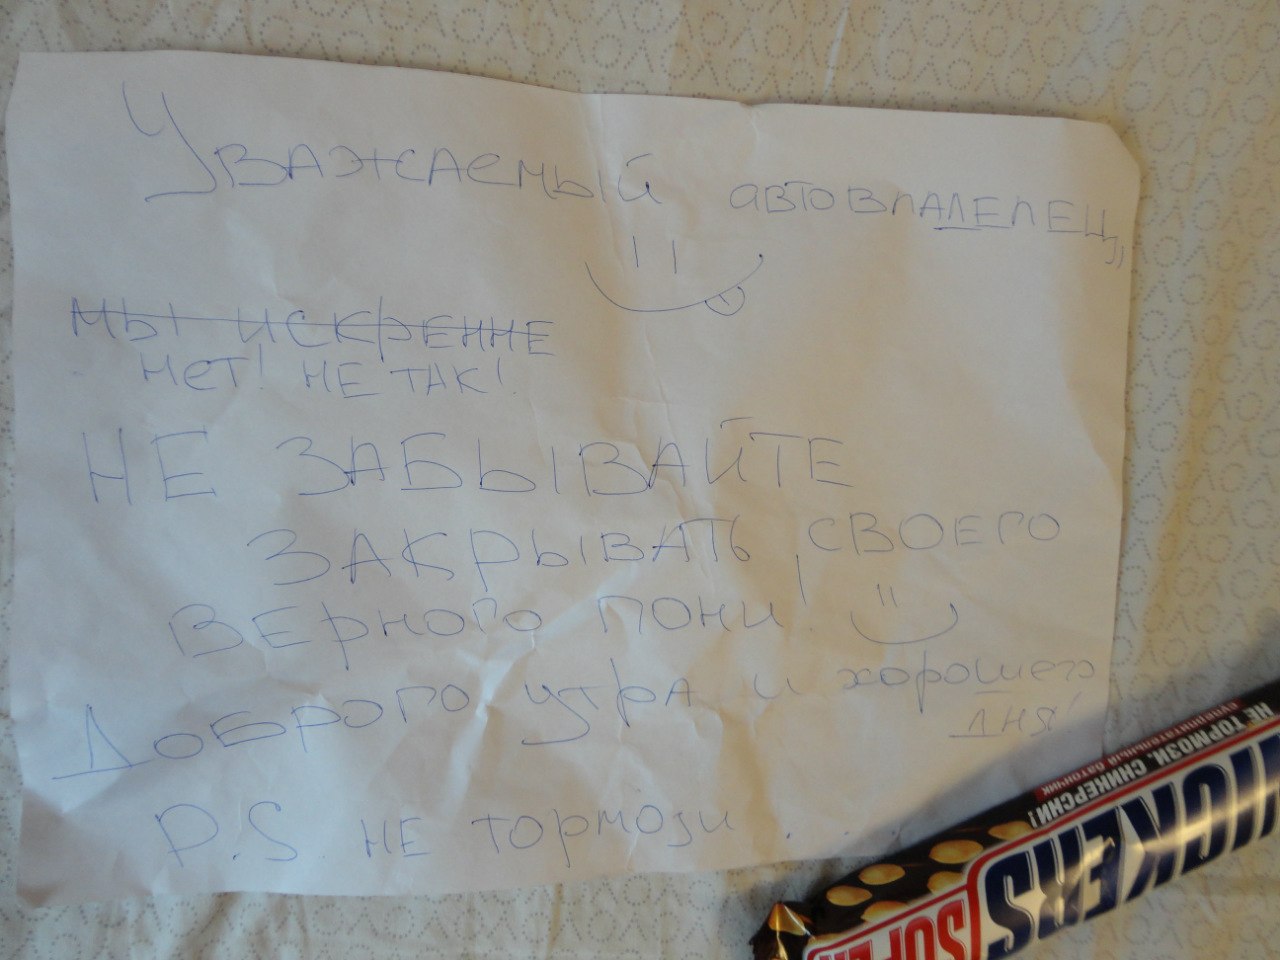 Уважаемый автовладелец,,
мы искренне
нет! не так!
НЕ ЗАБЫВАЙТЕ
ЗАКРЫВАТЬ СВОЕГО
ВЕРНОГО ПОНИ!
Доброго утра и хорошего
дня!
P.S не тормози . . .
НЕ ТОРМОЗИ, СНИКЕРСНИ!
SNICKERS
SUPER